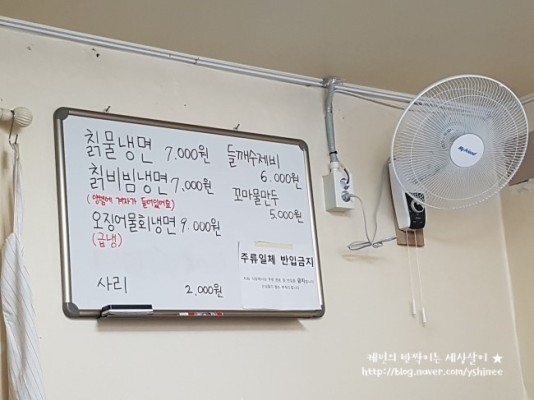 칡물냉면 7.000원
칡비빔냉면 7,000원
(양념에 겨자가 들어있어요)
오징어물회냉면 9.000원
(금냉)
사리 2,000원
들깨수제비
6.000원
꼬마물만두
5.000원
주류일체 반입금지
케빈의 반짝이는 세상살이 ★
http://blog.naver.com/yshinee